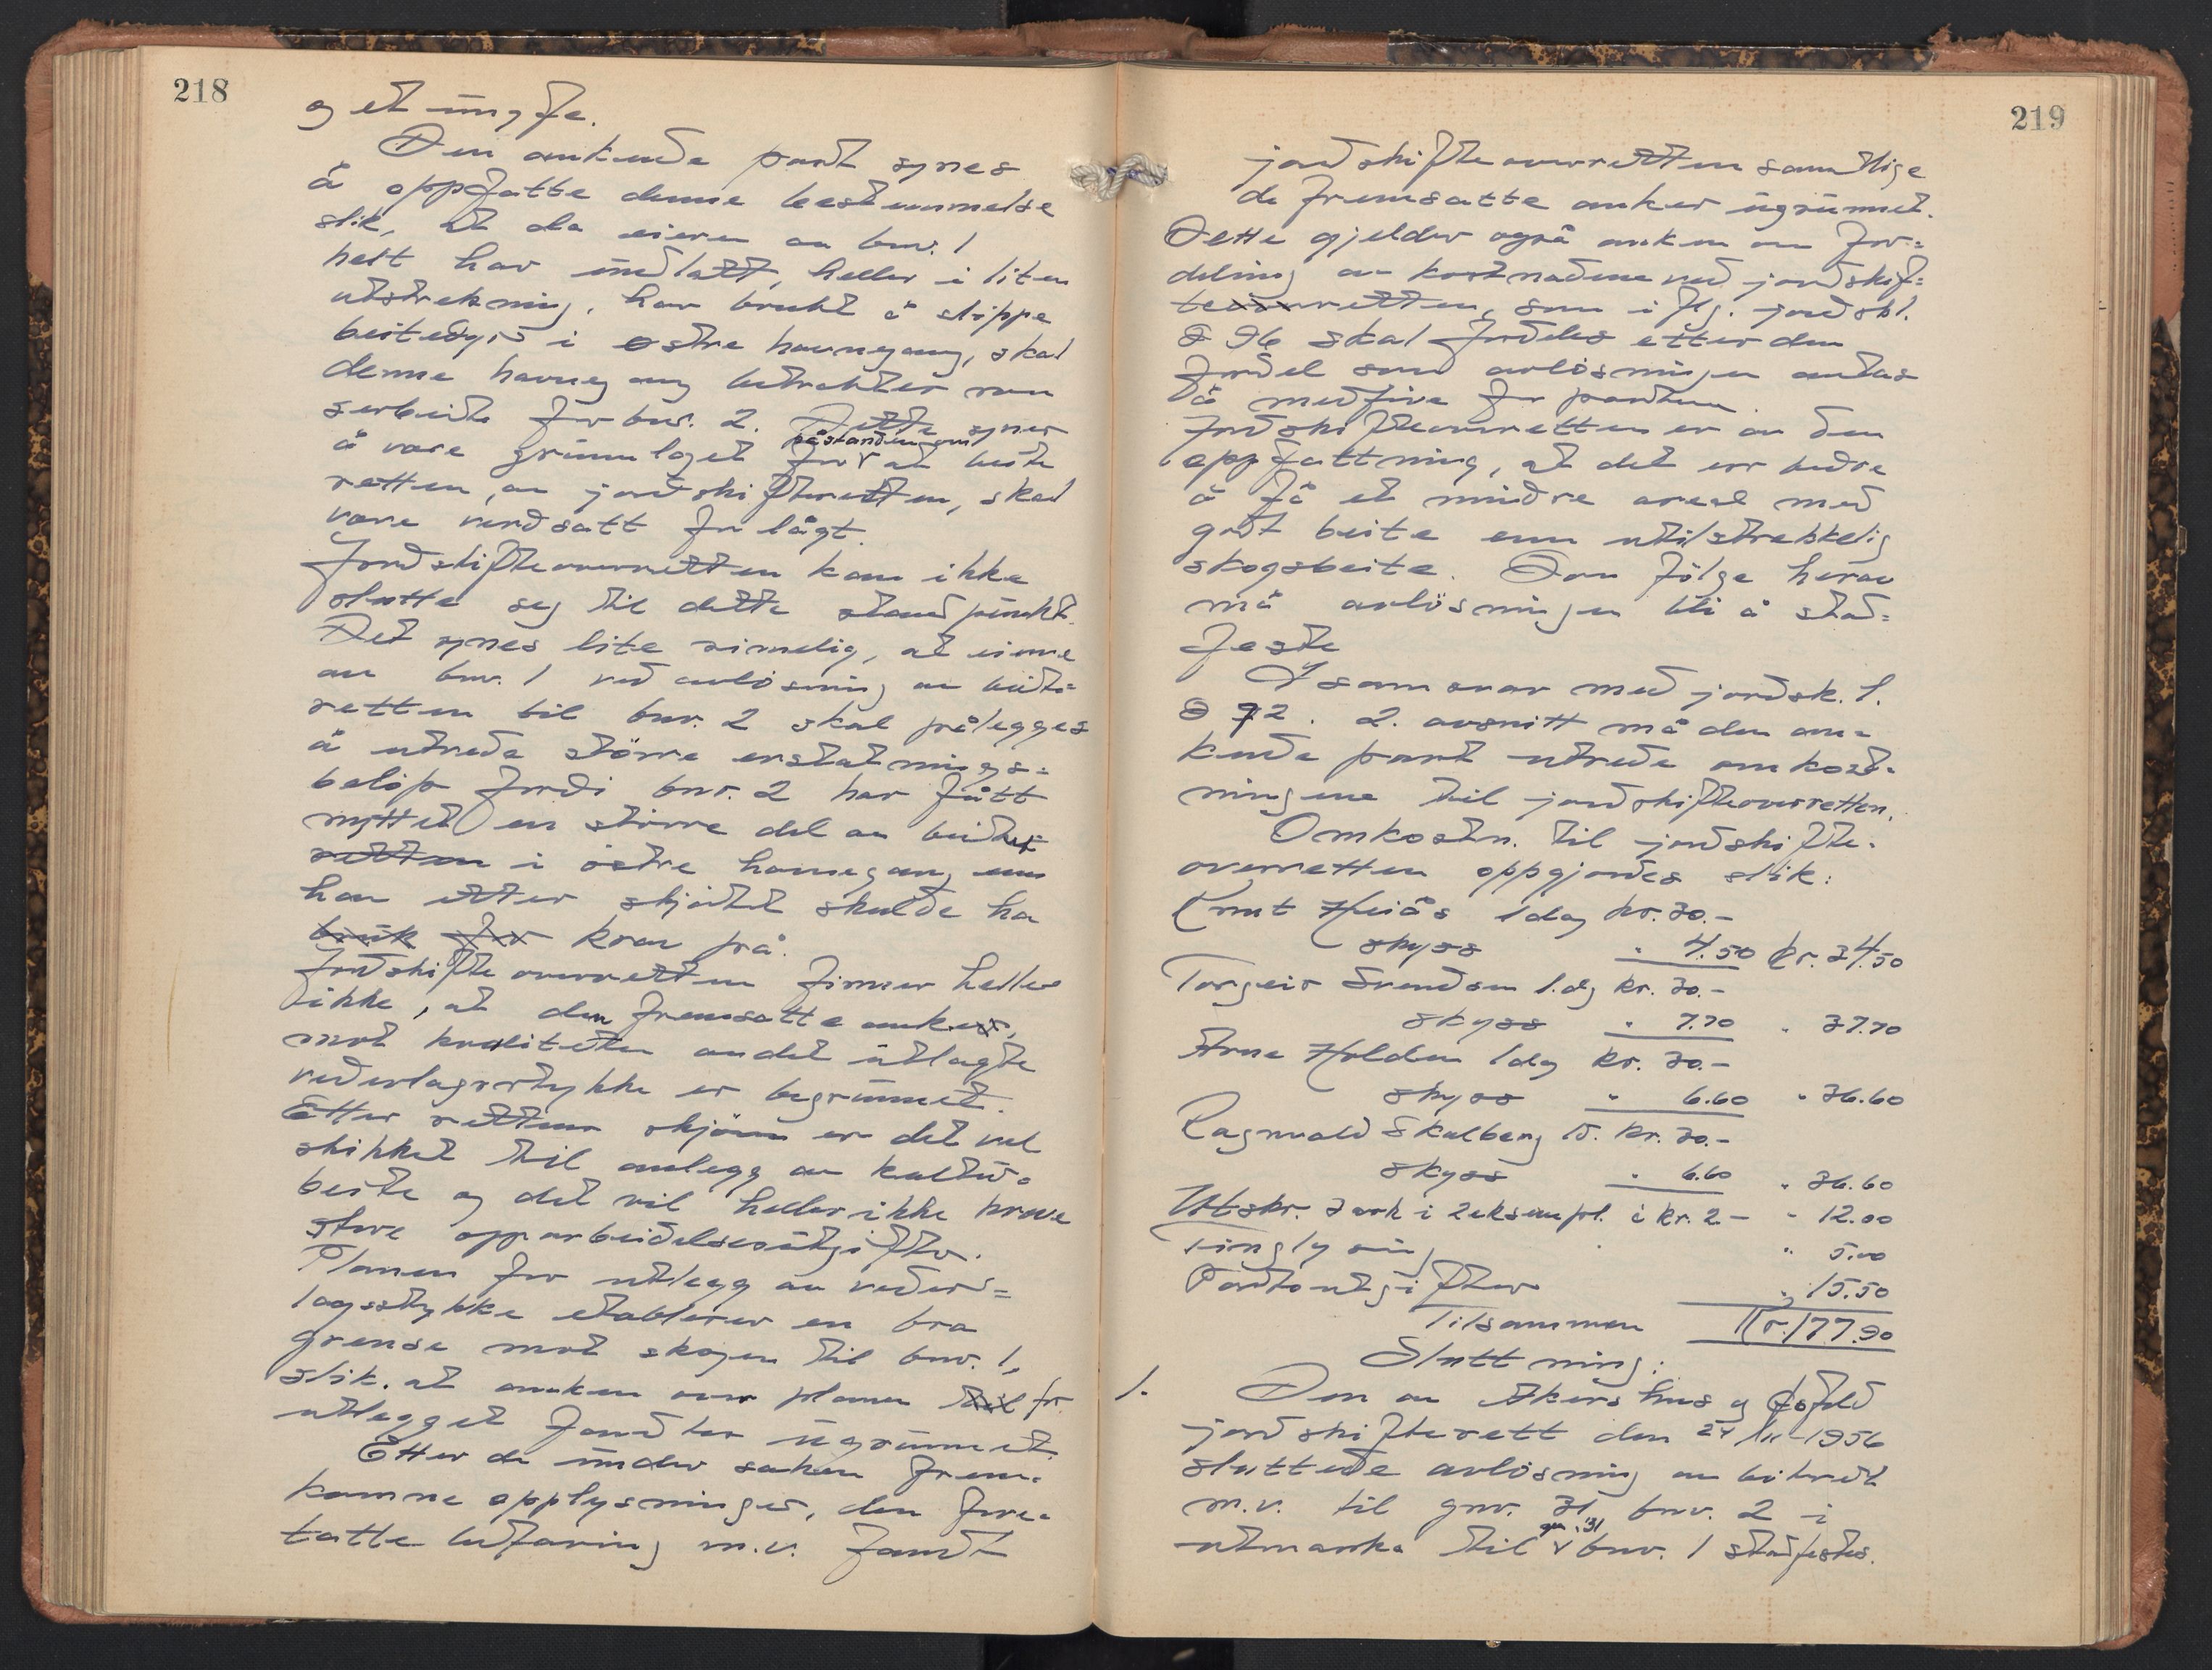 218
og et ungfe.
Den ankende part synes
å oppfatte denne bestemmelse
slik, at da eieren av bnr. 1
helt har unnlatt, heller i liten
utstrekning, har brukt å slippe
beitedyr i østre havnegang, skal
denne havnegang betraktes som
serbeite for bnr. 2. Dette synes
påstanden om
å være grunnlaget for at beite
retten, av jordskifteretten, skal
være verdsatt for lågt.
Jordskifteoverretten kan ikke
slutte seg til dette standpunkt.
Det synes lite rimelig, at eieren
av bnr. 1 ved avløsning av beite=
retten til bnr. 2 skal pålegges
å utrede større erstatnings=
beløp fordi bnr. 2 har fått
nyttet en større del av beitet
retten i østre havnegang enn
han etter skjøtet skulde ha
bruk for krav på.
Jordskifteoverretten finner heller
ikke, at den fremsatte anker,
mot kvaliteten av det utlagte
vederlagsstykke er begrunnet.
Etter rettens skjønn er det vel
skikket til anlegg av kultur=
beite og det vil heller ikke kreve
store opparbeidelsesutgifter.
Planen for utlegg av veder=
lagsstykke etablerer en bra
grense mot skogen til bnr. 1,
slik, at anken over planen til for
utlegget fandtes ugrunnet.
Etter de under saken frem=
komne opplysninger, den fore=
tatte befaring m.v. fandt
219
jordskifteoverretten samtlige
de fremsatte anker ugrunnet.
Dette gjelder også anken om for=
deling av kostnadene ved jordskif=
teoverretten, som i flg. jordskl.
§ 96 skal fordeles etter den
fordel som avløsningen antas
å medføre for partene.
Jordskifteoverretten er av den
oppfattning, at det er bedre
å få et mindre areal med
godt beite enn utilstrekkelig
skogsbeite. Som følge herav
må avløsningen bli å stad=
feste
I samsvar med jordsk. l.
§ 92. 2. avsnitt må den an=
kende part utrede omkost=
ningene til jordskifteoverretten.
Omkostn. til jordskifte=
overretten oppgjordes slik:
Knut Heiås 1 dag kr. 30.-
skyss " 4.50 kr. 34.50
Torgeir Svendsen 1. dg kr. 30.-
skyss " 7.70 " 37.70
Arne Holden 1 dag kr. 30.-
skyss " 6.60 " 36.60
Ragnvald Skulberg 1 d. kr. 30.-
skyss " 6.60 " 36.60
Utskr. 3 ark i 2 eksempl. à kr. 2.- " 12.00
Tinglysing " 5.00
Portoutgifter " 15.50
Tilsammen Kr. 177.90
Slutning:
1. Den av Akershus og Østfold
jordskifterett den 27/11-1956
sluttede avløsning av beiterett
m.v. til gnr. 31 bnr. 2 i
gnr. 31
utmarka til bnr. 1 stadfestes.